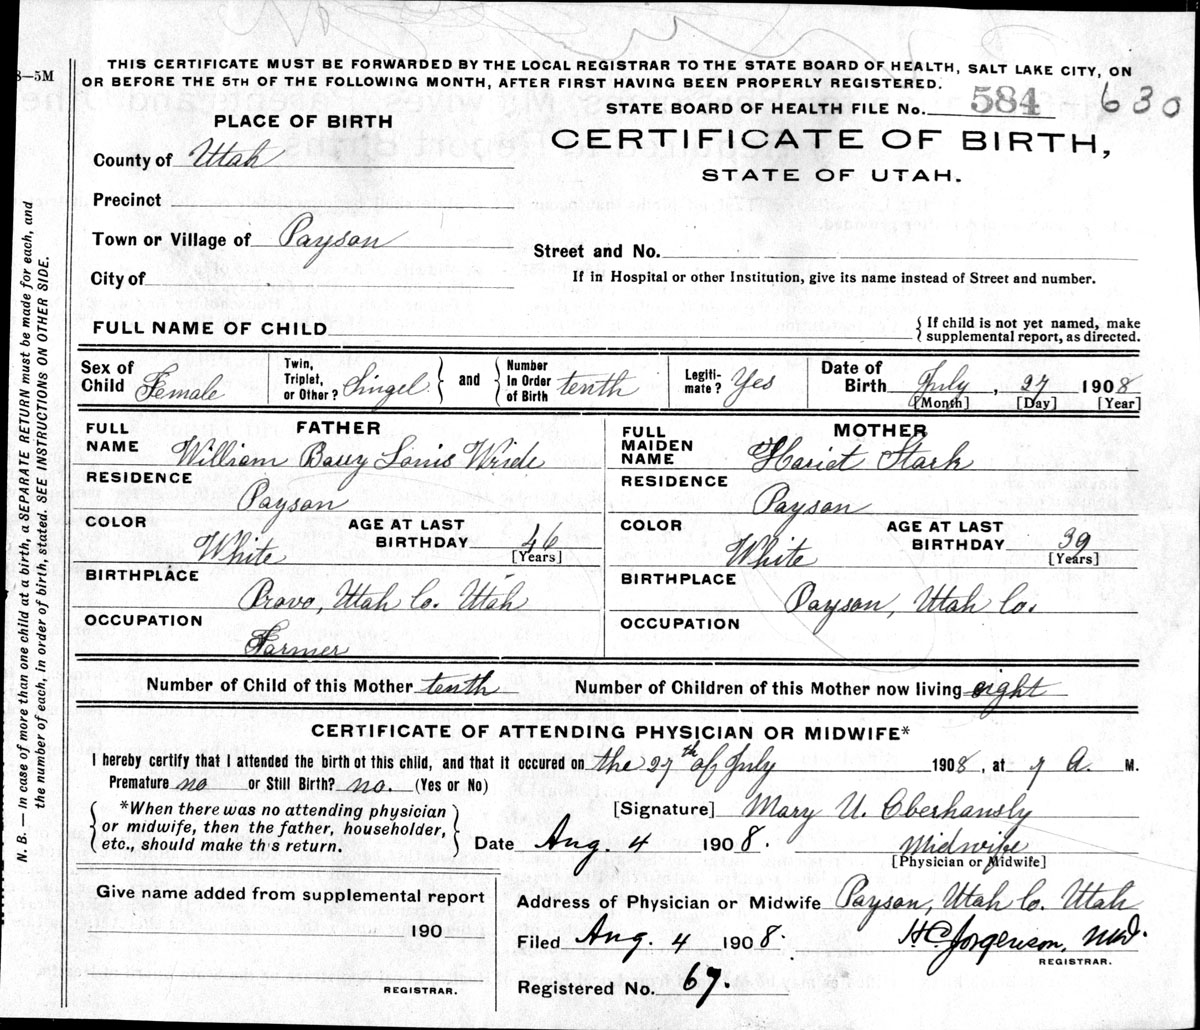 8—5M
THIS CERTIFICATE MUST BE FORWARDED BY THE LOCAL REGISTRAR TO THE STATE BOARD OF HEALTH, SALT LAKE CITY, ON
OR BEFORE THE 5TH OF THE FOLLOWING MONTH, AFTER FIRST HAVING BEEN PROPERLY REGISTERED.
STATE BOARD OF HEALTH FILE No. 584 - 630
PLACE OF BIRTH
CERTIFICATE OF BIRTH,
STATE OF UTAH.
County of Utah
Precinct
Town or Village of Payson
Street and No.
City of
If in Hospital or other Institution, give its name instead of Street and number.
FULL NAME OF CHILD
{If child is not yet named, make
supplemental report, as directed.
Sex of Child Female
Twin, Triplet, or Other? Singel } and { Number In Order of Birth tenth
Legiti-mate? Yes
Date of Birth July, 27 1908
[Month] [Day] [Year]
FATHER
FULL NAME William Barry Lonis Wride
RESIDENCE
Payson
COLOR White
AGE AT LAST BIRTHDAY 46
[Years]
BIRTHPLACE
Provo, Utah Co. Utah
OCCUPATION
Farmer
MOTHER
FULL MAIDEN NAME Hariet Stark
RESIDENCE
Payson
COLOR White
AGE AT LAST BIRTHDAY 39
[Years]
BIRTHPLACE
Payson, Utah Co.
OCCUPATION
Number of Child of this Mother tenth Number of Children of this Mother now living eight
CERTIFICATE OF ATTENDING PHYSICIAN OR MIDWIFE*
I hereby certify that I attended the birth of this child, and that it occured on the 27th of July 1908, at 7 A. M.
Premature no or Still Birth? no. (Yes or No)
{*When there was no attending physician
or midwife, then the father, householder,
etc., should make this return.}
[Signature] Mary U. Oberhansly
Date Aug. 4 1908. Midwife
[Physician or Midwife]
Give name added from supplemental report
190
REGISTRAR.
Address of Physician or Midwife Payson, Utah Co. Utah
Filed Aug. 4 1908. H.C. Jorgenson, M.D.
REGISTRAR.
Registered No. 67.
N. B. — In case of more than one child at a birth, a SEPARATE RETURN must be made for each, and
the number of each, in order of birth, stated. SEE INSTRUCTIONS ON OTHER SIDE.